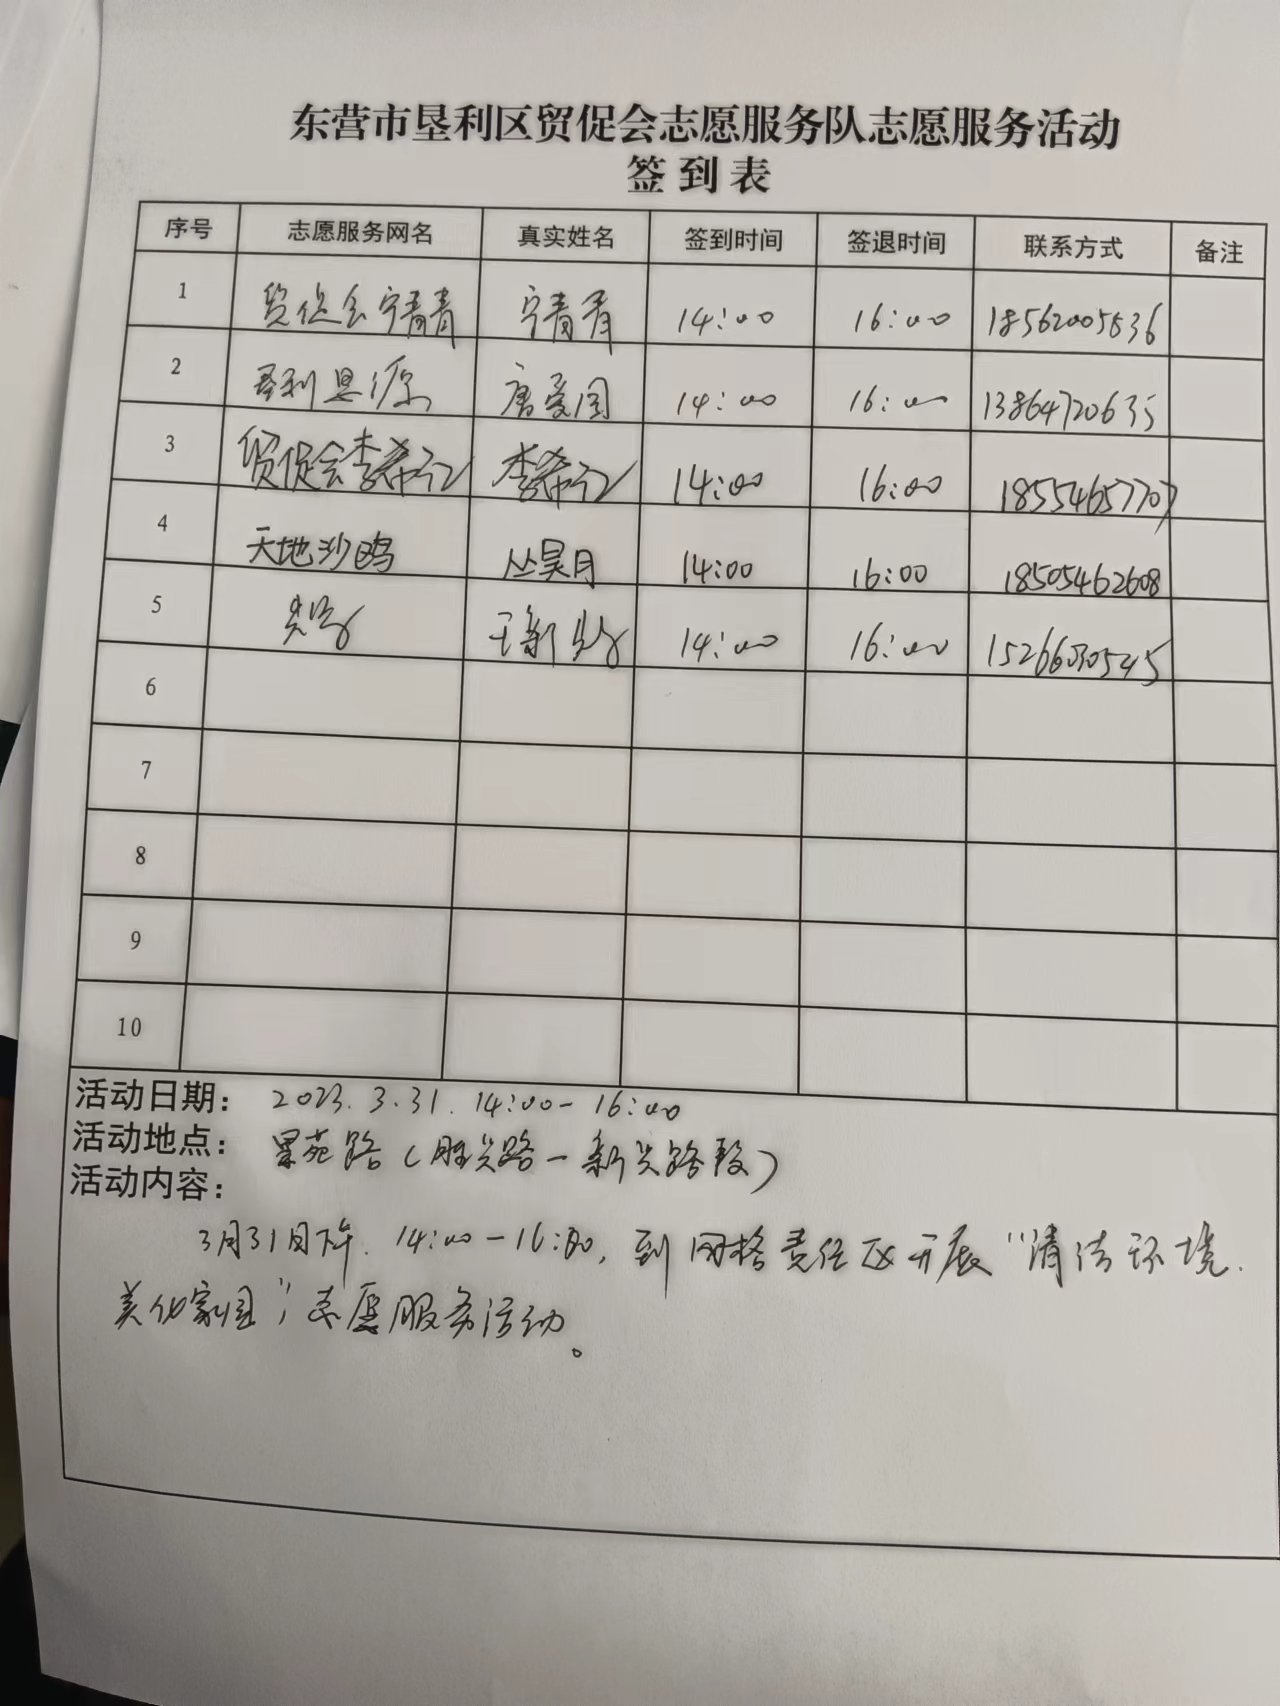 东营市垦利区贸促会志愿服务队志愿服务活动
签到表
序号 志愿服务网名 真实姓名 签到时间 签退时间 联系方式 备注
1 贸促会宁青青 宁青青 14:00 16:00 18562005836
2 垦利思源 唐爱国 14:00 16:00
3 贸促会李希江 李希江 14:00 16:00 18554657707
4 天地沙鸥 丛昊月 14:00 16:00 18505462608
5 王新 14:00 16:00 15266030545
6
7
8
9
10
活动日期： 2023.3.31. 14:00-16:00
活动地点： 景苑路（胜兴路-新兴路段）
活动内容：
3月31日下午.14:00-16:00,到网格责任区开展“清洁环境.
美化家园”志愿服务活动。